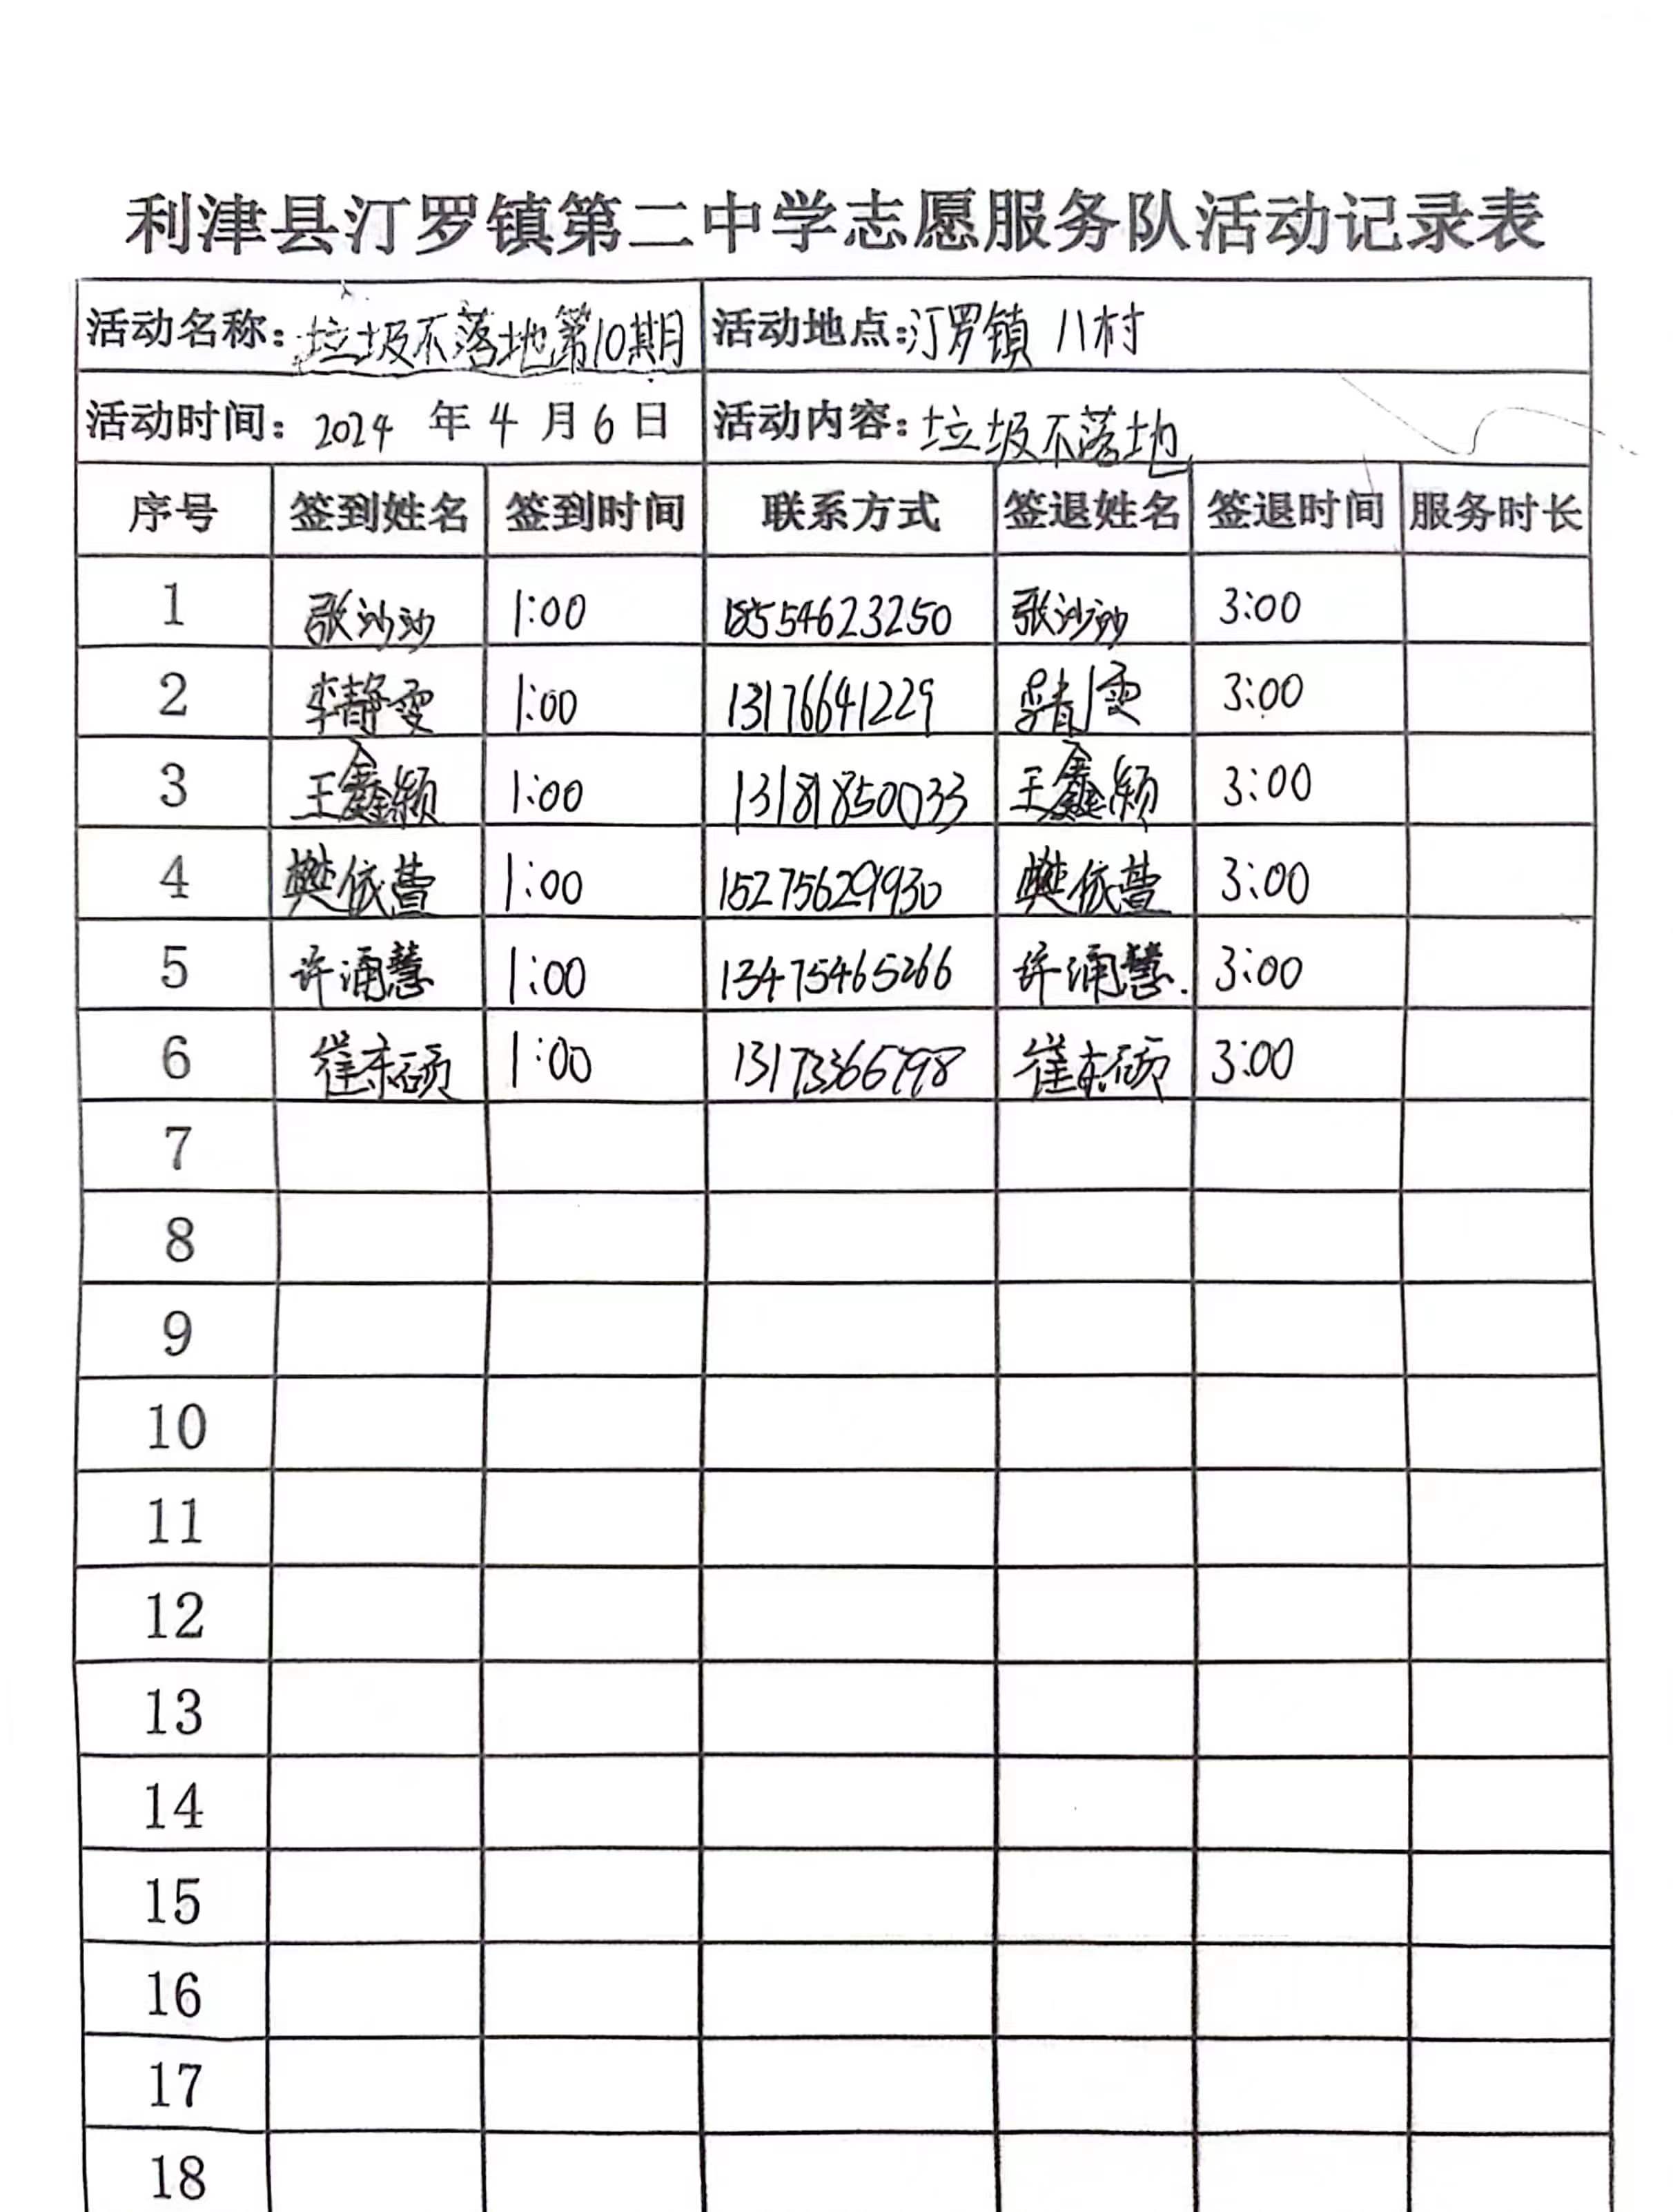 利津县汀罗镇第二中学志愿服务队活动记录表
活动名称：垃圾不落地第10期 活动地点：汀罗镇 八村
活动时间：2024 年 4 月 6 日 活动内容：垃圾不落地
序号 签到姓名 签到时间 联系方式 签退姓名 签退时间 服务时长
1 张沙沙 1:00 18554623250 张沙沙 3:00
2 李静雯 1:00 13176641229 李静雯 3:00
3 王鑫颖 1:00 13181850033 王鑫颖 3:00
4 樊依萱 1:00 15275629930 樊依萱 3:00
5 许涌慧 1:00 13475465266 许涌慧. 3:00
6 崔东硕 1:00 13173366798 崔东硕 3:00
7
8
9
10
11
12
13
14
15
16
17
18